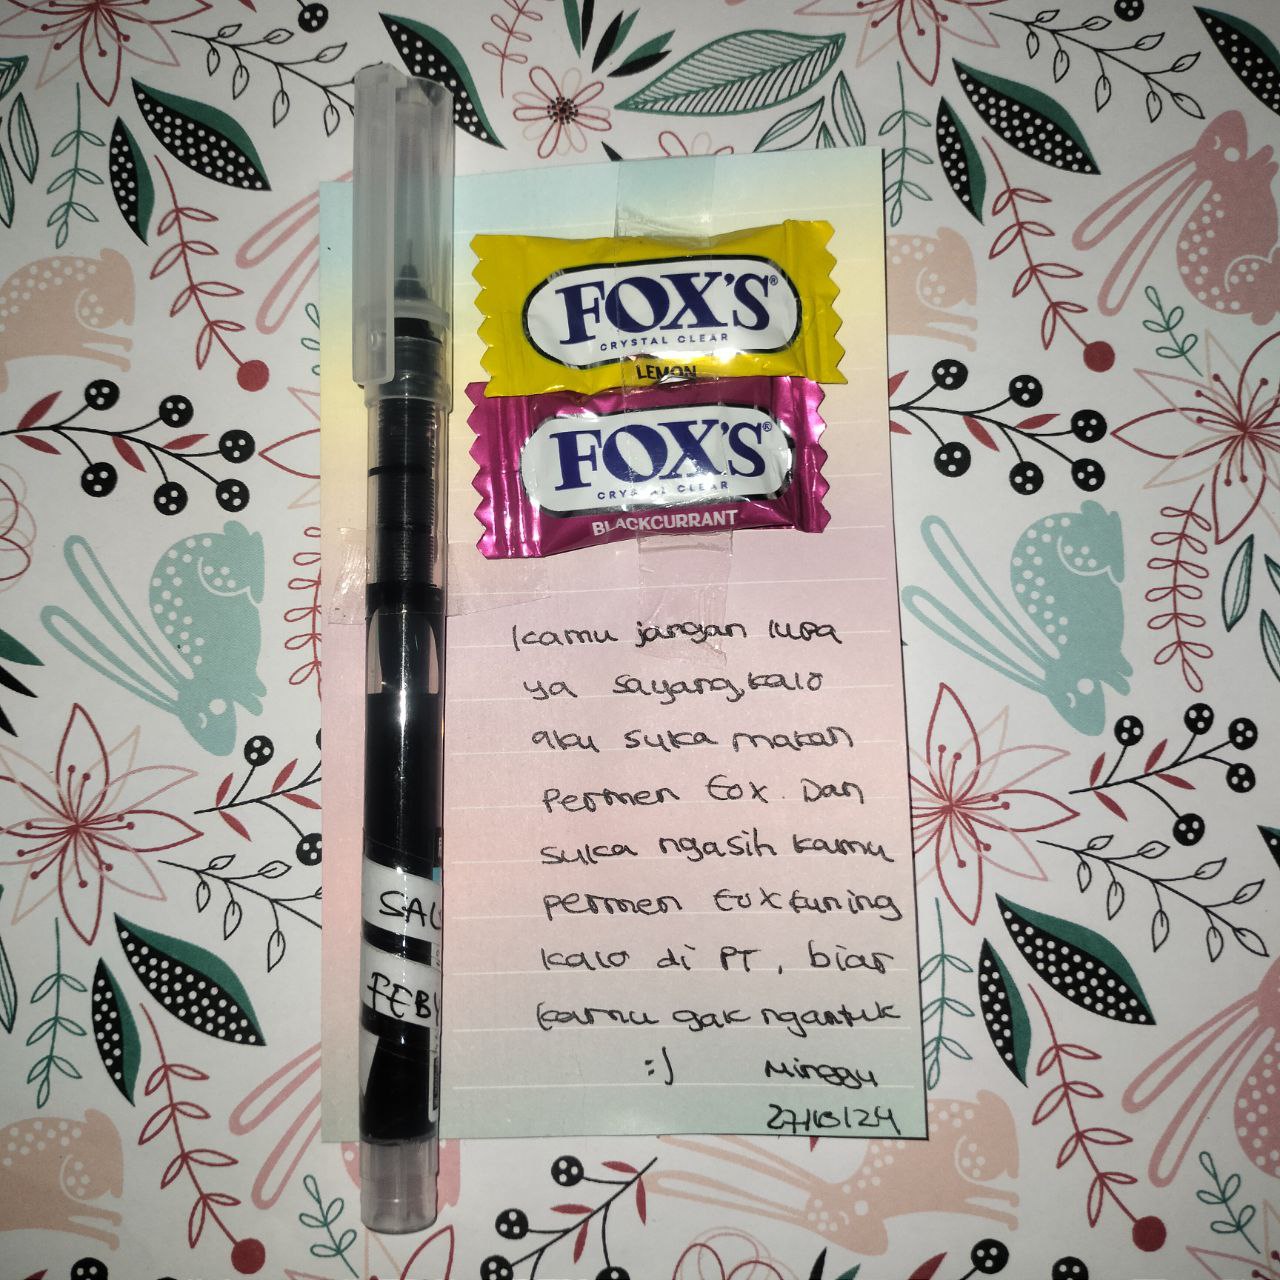 FOX'S®
CRYSTAL CLEAR
LEMON
FOX'S®
CRYSTAL CLEAR
BLACKCURRANT
kamu jangan lupa
ya sayang, kalo
aku suka makan
permen fox. Dan
suka ngasih kamu
permen fox kuning
kalo di PT, biar
kamu gak ngantuk
:)
Minggu
27/10/24
SAL
FEBY